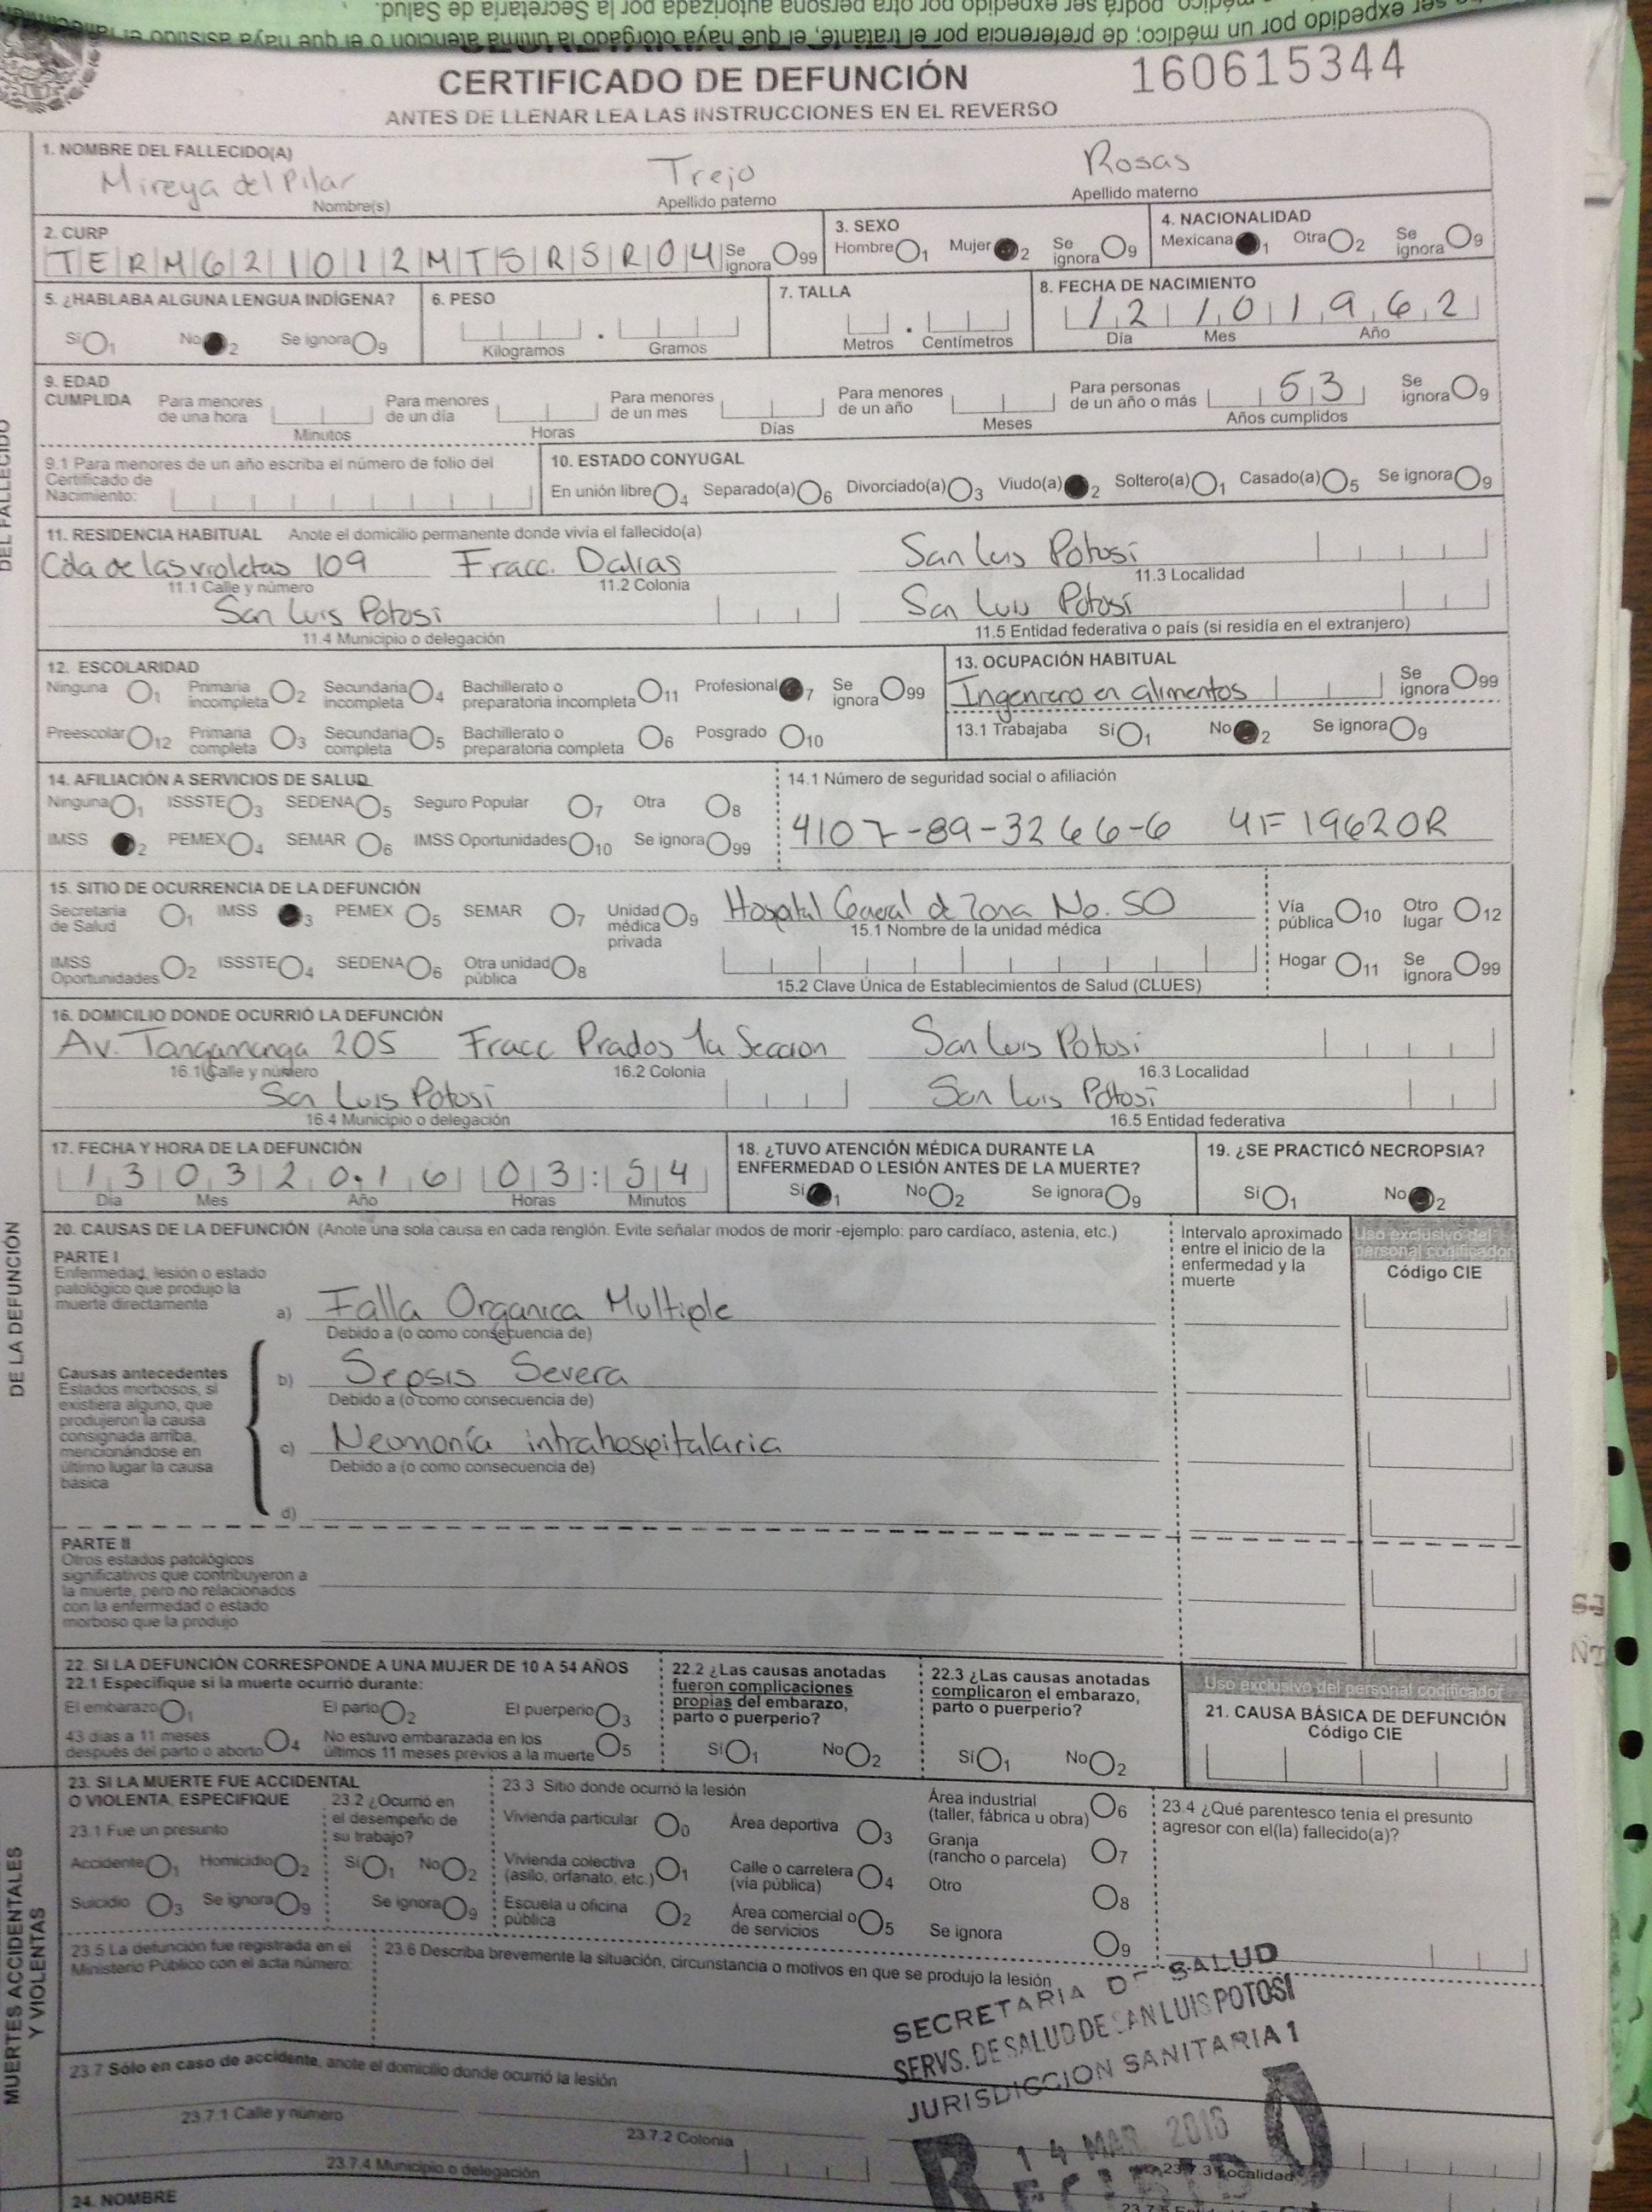 ser expedido por un médico; de preferencia por el tratante, el que haya otorgado la última atención o el que haya asistido el
médico podrá ser expedido por otra persona autorizada por la Secretaría de Salud.
CERTIFICADO DE DEFUNCIÓN
160615344
ANTES DE LLENAR LEA LAS INSTRUCCIONES EN EL REVERSO
DEL FALLECIDO
1. NOMBRE DEL FALLECIDO(A)
Mireya del Pilar Trejo Rosas
Nombre(s) Apellido paterno Apellido materno
2. CURP
TERM621012MTSRSR04 Se ignora 99
3. SEXO
Hombre 1 Mujer 2 Se ignora 9
4. NACIONALIDAD
Mexicana 1 Otra 2 Se ignora 9
5. ¿HABLABA ALGUNA LENGUA INDÍGENA?
Sí 1 No 2 Se ignora 9
6. PESO
Kilogramos . Gramos
7. TALLA
Metros . Centímetros
8. FECHA DE NACIMIENTO
12 10 1962
Día Mes Año
9. EDAD CUMPLIDA
Para menores de una hora
Minutos
Para menores de un día
Horas
Para menores de un mes
Días
Para menores de un año
Meses
Para personas de un año o más 53
Años cumplidos
Se ignora 9
9.1 Para menores de un año escriba el número de folio del Certificado de Nacimiento:
10. ESTADO CONYUGAL
En unión libre 4 Separado(a) 6 Divorciado(a) 3 Viudo(a) 2 Soltero(a) 1 Casado(a) 5 Se ignora 9
11. RESIDENCIA HABITUAL Anote el domicilio permanente donde vivía el fallecido(a)
Cda de las violetas 109 Fracc. Dalias San Luis Potosí
11.1 Calle y número 11.2 Colonia 11.3 Localidad
San Luis Potosí San Luis Potosí
11.4 Municipio o delegación 11.5 Entidad federativa o país (si residía en el extranjero)
12. ESCOLARIDAD
Ninguna 1 Primaria incompleta 2 Secundaria incompleta 4 Bachillerato o preparatoria incompleta 11 Profesional 7 Se ignora 99
Preescolar 12 Primaria completa 3 Secundaria completa 5 Bachillerato o preparatoria completa 6 Posgrado 10
13. OCUPACIÓN HABITUAL
Ingeniero en alimentos Se ignora 99
13.1 Trabajaba Sí 1 No 2 Se ignora 9
14. AFILIACIÓN A SERVICIOS DE SALUD
Ninguna 1 ISSSTE 3 SEDENA 5 Seguro Popular 7 Otra 8
IMSS 2 PEMEX 4 SEMAR 6 IMSS Oportunidades 10 Se ignora 99
14.1 Número de seguridad social o afiliación
4107-89-3266-6 4F19620R
15. SITIO DE OCURRENCIA DE LA DEFUNCIÓN
Secretaría de Salud 1 IMSS 3 PEMEX 5 SEMAR 7 Unidad médica privada 9
IMSS Oportunidades 2 ISSSTE 4 SEDENA 6 Otra unidad pública 8
Hospital General de Zona No. 50
15.1 Nombre de la unidad médica
15.2 Clave Única de Establecimientos de Salud (CLUES)
Vía pública 10 Otro lugar 12
Hogar 11 Se ignora 99
16. DOMICILIO DONDE OCURRIÓ LA DEFUNCIÓN
Av. Tangamanga 205 Fracc Prados 1a Seccion San Luis Potosi
16.1 Calle y número 16.2 Colonia 16.3 Localidad
San Luis Potosí San Luis Potosí
16.4 Municipio o delegación 16.5 Entidad federativa
DE LA DEFUNCIÓN
17. FECHA Y HORA DE LA DEFUNCIÓN
13 03 2016 03:54
Día Mes Año Horas Minutos
18. ¿TUVO ATENCIÓN MÉDICA DURANTE LA ENFERMEDAD O LESIÓN ANTES DE LA MUERTE?
Sí 1 No 2 Se ignora 9
19. ¿SE PRACTICÓ NECROPSIA?
Sí 1 No 2
20. CAUSAS DE LA DEFUNCIÓN (Anote una sola causa en cada renglón. Evite señalar modos de morir -ejemplo: paro cardíaco, astenia, etc.)
Intervalo aproximado entre el inicio de la enfermedad y la muerte
Uso exclusivo del personal codificador
Código CIE
PARTE I
Enfermedad, lesión o estado patológico que produjo la muerte directamente
a) Falla Organica Multiple
Debido a (o como consecuencia de)
Causas antecedentes
Estados morbosos, si existiera alguno, que produjeron la causa consignada arriba, mencionándose en último lugar la causa básica
b) Sepsis Severa
Debido a (o como consecuencia de)
c) Neomonía intrahospitalaria
Debido a (o como consecuencia de)
d)
PARTE II
Otros estados patológicos significativos que contribuyeron a la muerte, pero no relacionados con la enfermedad o estado morboso que la produjo
22. SI LA DEFUNCIÓN CORRESPONDE A UNA MUJER DE 10 A 54 AÑOS
22.1 Especifique si la muerte ocurrió durante:
El embarazo 1 El parto 2 El puerperio 3
43 días a 11 meses después del parto o aborto 4 No estuvo embarazada en los últimos 11 meses previos a la muerte 5
22.2 ¿Las causas anotadas fueron complicaciones propias del embarazo, parto o puerperio?
Sí 1 No 2
22.3 ¿Las causas anotadas complicaron el embarazo, parto o puerperio?
Sí 1 No 2
Uso exclusivo del personal codificador
21. CAUSA BÁSICA DE DEFUNCIÓN
Código CIE
MUERTES ACCIDENTALES Y VIOLENTAS
23. SI LA MUERTE FUE ACCIDENTAL O VIOLENTA, ESPECIFIQUE
23.1 Fue un presunto
Accidente 1 Homicidio 2
Suicidio 3 Se ignora 9
23.2 ¿Ocurrió en el desempeño de su trabajo?
Sí 1 No 2
Se ignora 9
23.3 Sitio donde ocurrió la lesión
Vivienda particular 0 Área deportiva 3 Área industrial (taller, fábrica u obra) 6
Vivienda colectiva (asilo, orfanato, etc.) 1 Calle o carretera (vía pública) 4 Granja (rancho o parcela) 7
Escuela u oficina pública 2 Área comercial o de servicios 5 Otro 8
Se ignora 9
23.4 ¿Qué parentesco tenía el presunto agresor con el(la) fallecido(a)?
23.5 La defunción fue registrada en el Ministerio Público con el acta número:
23.6 Describa brevemente la situación, circunstancia o motivos en que se produjo la lesión
SECRETARIA DE SALUD
SERVS. DE SALUD DE SAN LUIS POTOSI
JURISDICCION SANITARIA 1
14 MAR 2016
RECIBIDO
23.7 Sólo en caso de accidente, anote el domicilio donde ocurrió la lesión
23.7.1 Calle y número 23.7.2 Colonia 23.7.3 Localidad
23.7.4 Municipio o delegación
24. NOMBRE